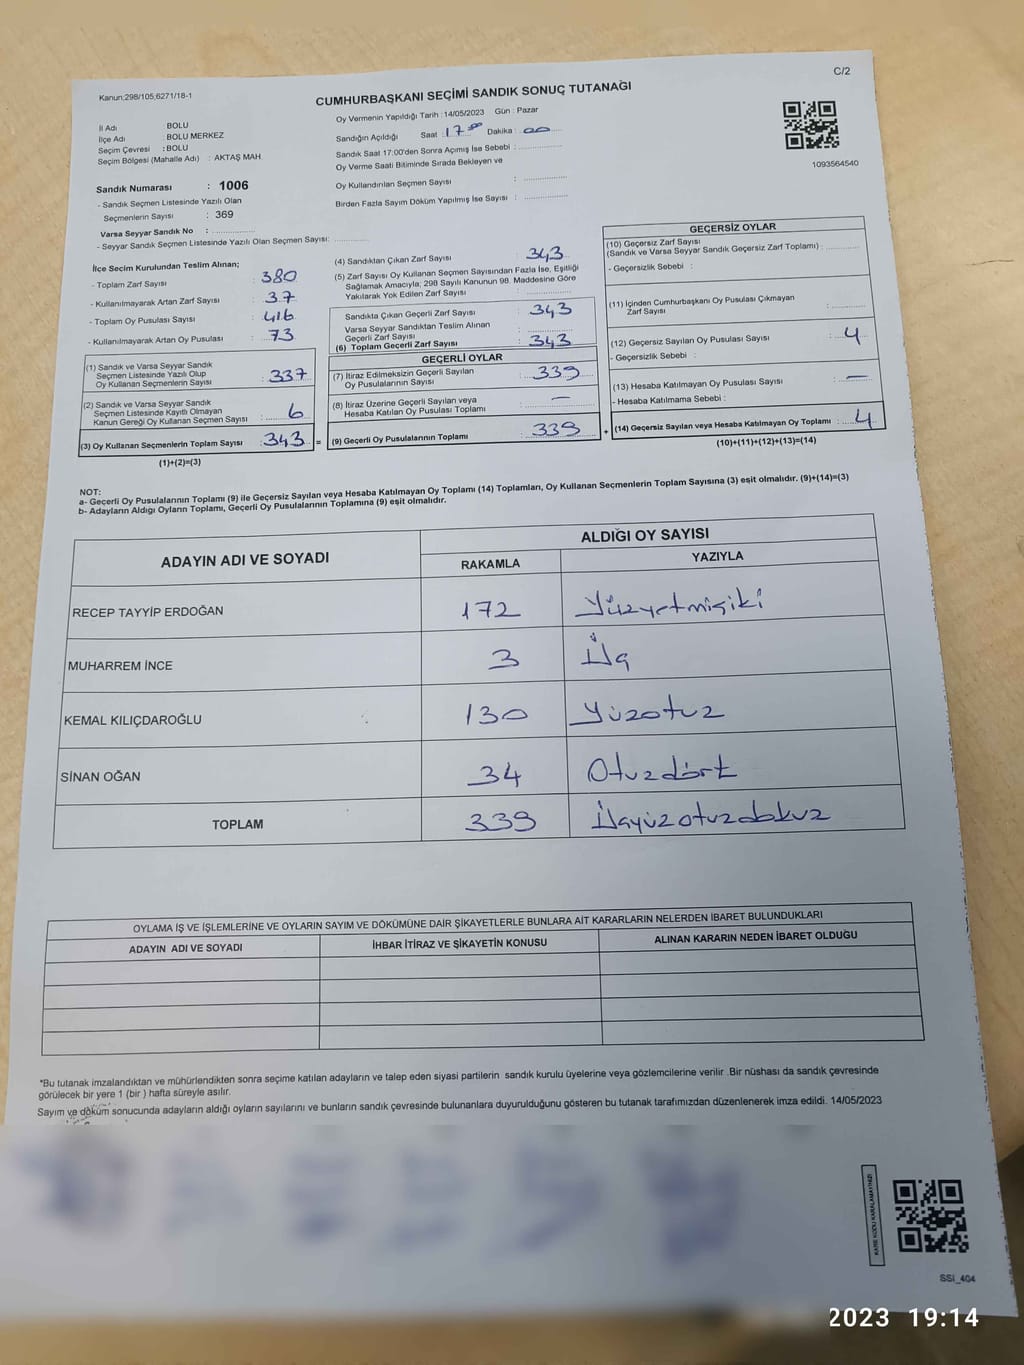 C/2
Kanun:298/105,6271/18-1
CUMHURBAŞKANI SEÇİMİ SANDIK SONUÇ TUTANAĞI
İl Adı : BOLU
İlçe Adı : BOLU MERKEZ
Seçim Çevresi : BOLU
Seçim Bölgesi (Mahalle Adı) : AKTAŞ MAH.
Sandık Numarası : 1006
- Sandık Seçmen Listesinde Yazılı Olan
Seçmenlerin Sayısı : 369
Varsa Seyyar Sandık No :
- Seyyar Sandık Seçmen Listesinde Yazılı Olan Seçmen Sayısı:
Oy Vermenin Yapıldığı Tarih :14/05/2023 Gün : Pazar
Sandığın Açıldığı Saat 17 00 Dakika : 00
Sandık Saat 17:00'den Sonra Açımış İse Sebebi :
Oy Verme Saati Bitiminde Sırada Bekleyen ve
Oy Kullandırılan Seçmen Sayısı :
Birden Fazla Sayım Döküm Yapılmış İse Sayısı :
1093564540
İlçe Seçim Kurulundan Teslim Alınan;
- Toplam Zarf Sayısı : 380
- Kullanılmayarak Artan Zarf Sayısı : 37
- Toplam Oy Pusulası Sayısı : 416
- Kullanılmayarak Artan Oy Pusulası : 73
(1) Sandık ve Varsa Seyyar Sandık
Seçmen Listesinde Yazılı Olup
Oy Kullanan Seçmenlerin Sayısı : 337
(2) Sandık ve Varsa Seyyar Sandık
Seçmen Listesinde Kayıtlı Olmayan
Kanun Gereği Oy Kullanan Seçmen Sayısı : 6
(3) Oy Kullanan Seçmenlerin Toplam Sayısı : 343 =
(1)+(2)=(3)
(4) Sandıktan Çıkan Zarf Sayısı : 343
(5) Zarf Sayısı Oy Kullanan Seçmen Sayısından Fazla İse, Eşitliği
Sağlamak Amacıyla; 298 Sayılı Kanunun 98. Maddesine Göre
Yakılarak Yok Edilen Zarf Sayısı :
Sandıkta Çıkan Geçerli Zarf Sayısı : 343
Varsa Seyyar Sandıktan Teslim Alınan
Geçerli Zarf Sayısı :
(6) Toplam Geçerli Zarf Sayısı : 343
GEÇERLİ OYLAR
(7) İtiraz Edilmeksizin Geçerli Sayılan
Oy Pusulalarının Sayısı : 339
(8) İtiraz Üzerine Geçerli Sayılan veya
Hesaba Katılan Oy Pusulası Toplamı : —
(9) Geçerli Oy Pusulalarının Toplamı : 339 +
GEÇERSİZ OYLAR
(10) Geçersiz Zarf Sayısı
(Sandık ve Varsa Seyyar Sandık Geçersiz Zarf Toplamı) :
- Geçersizlik Sebebi :
(11) İçinden Cumhurbaşkanı Oy Pusulası Çıkmayan
Zarf Sayısı :
(12) Geçersiz Sayılan Oy Pusulası Sayısı : 4
- Geçersizlik Sebebi :
(13) Hesaba Katılmayan Oy Pusulası Sayısı : —
- Hesaba Katılmama Sebebi :
(14) Geçersiz Sayılan veya Hesaba Katılmayan Oy Toplamı : 4
(10)+(11)+(12)+(13)=(14)
NOT:
a- Geçerli Oy Pusulalarının Toplamı (9) ile Geçersiz Sayılan veya Hesaba Katılmayan Oy Toplamı (14) Toplamları, Oy Kullanan Seçmenlerin Toplam Sayısına (3) eşit olmalıdır. (9)+(14)=(3)
b- Adayların Aldığı Oyların Toplamı, Geçerli Oy Pusulalarının Toplamına (9) eşit olmalıdır.
ADAYIN ADI VE SOYADI
ALDIĞI OY SAYISI
RAKAMLA YAZIYLA
RECEP TAYYİP ERDOĞAN 172 Yüzyetmişiki
MUHARREM İNCE 3 Üç
KEMAL KILIÇDAROĞLU 130 Yüzotuz
SİNAN OĞAN 34 Otuzdört
TOPLAM 339 Üçyüzotuzdokuz
OYLAMA İŞ VE İŞLEMLERİNE VE OYLARIN SAYIM VE DÖKÜMÜNE DAİR ŞİKAYETLERLE BUNLARA AİT KARARLARIN NELERDEN İBARET BULUNDUKLARI
ADAYIN ADI VE SOYADI İHBAR İTİRAZ VE ŞİKAYETİN KONUSU ALINAN KARARIN NEDEN İBARET OLDUĞU
*Bu tutanak imzalandıktan ve mühürlendikten sonra seçime katılan adayların ve talep eden siyasi partilerin sandık kurulu üyelerine veya gözlemcilerine verilir .Bir nüshası da sandık çevresinde
görülecek bir yere 1 (bir ) hafta süreyle asılır.
Sayım ve döküm sonucunda adayların aldığı oyların sayılarını ve bunların sandık çevresinde bulunanlara duyurulduğunu gösteren bu tutanak tarafımızdan düzenlenerek imza edildi. 14/05/2023
KARE KODU KARALAMAYINIZ!
SSİ_404
2023 19:14